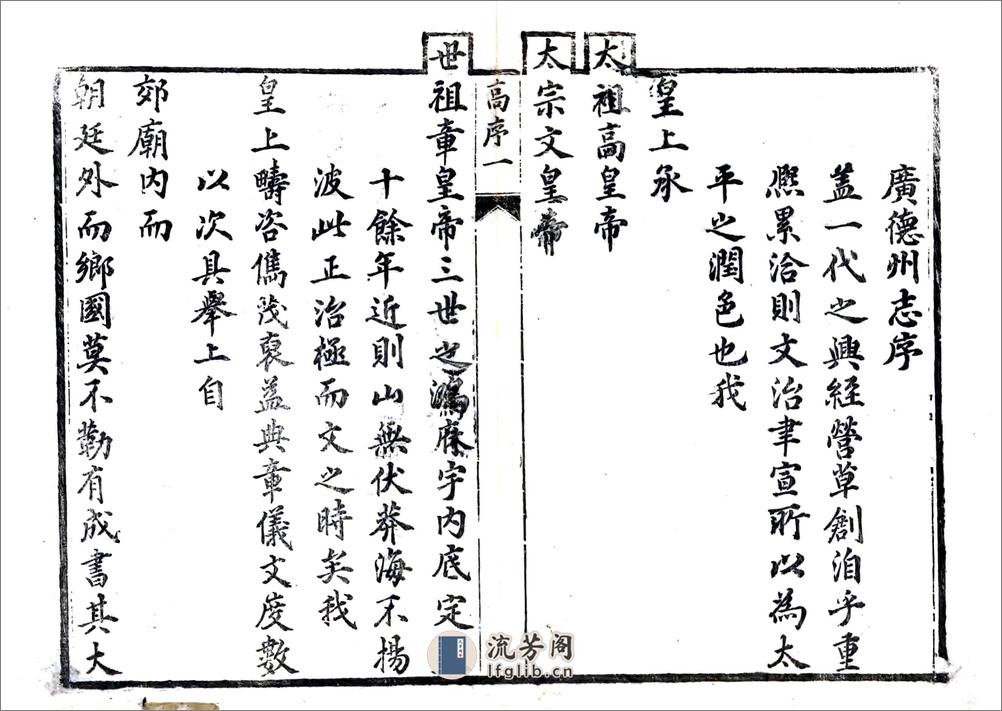 廣德州志序
蓋一代之興經營草創洎乎重
熙累洽則文治聿宣所以為太
平之潤色也我
皇上承
太祖高皇帝
太宗文皇帝
高序一
世祖章皇帝三世之鴻庥宇内底定
十餘年近則山無伏莽海不揚
波此正治極而文之時矣我
皇上疇咨儁茂裒益典章儀文度數
以次具舉上自
郊廟内而
朝廷外而鄉國莫不勒有成書其大
流芳阁
lfglib.cn